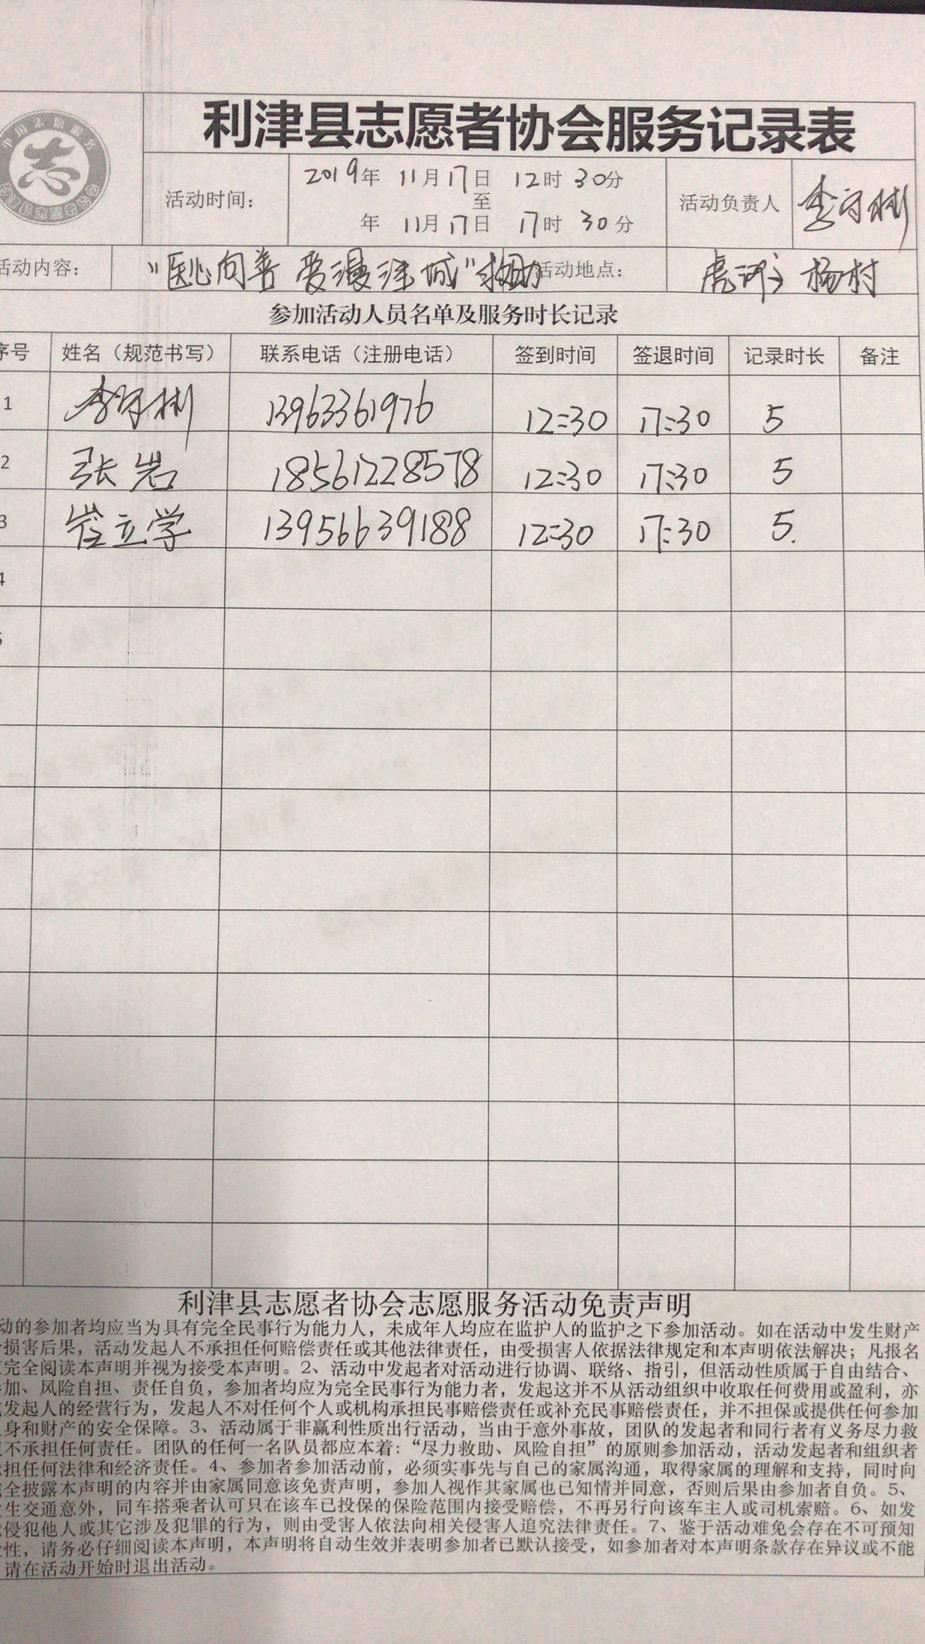 利津县志愿者协会服务记录表
中国志愿服务
志
活动时间：
2019年 11月17日 12时 30分
至
年 11月17日 17时 30分
活动负责人
李守彬
活动内容：
"医心向善 爱漫津城"救助
活动地点：
杨村
参加活动人员名单及服务时长记录
序号 姓名（规范书写） 联系电话（注册电话） 签到时间 签退时间 记录时长 备注
1 李守彬 13963361976 12:30 17:30 5
2 张岩 18561228578 12:30 17:30 5
3 岩立学 13956639188 12:30 17:30 5.
4
5
利津县志愿者协会志愿服务活动免责声明
动的参加者均应当为具有完全民事行为能力人，未成年人均应在监护人的监护之下参加活动。如在活动中发生财产
损害后果，活动发起人不承担任何赔偿责任或其他法律责任，由受损害人依据法律规定和本声明依法解决；凡报名
完全阅读本声明并视为接受本声明。2、活动中发起者对活动进行协调、联络、指引，但活动性质属于自由结合、
加、风险自担、责任自负，参加者均应为完全民事行为能力者，发起这并不从活动组织中收取任何费用或盈利，亦
发起人的经营行为，发起人不对任何个人或机构承担民事赔偿责任或补充民事赔偿责任，并不担保或提供任何参加
身和财产的安全保障。3、活动属于非赢利性质出行活动，当由于意外事故，团队的发起者和同行者有义务尽力救
不承担任何责任。团队的任何一名队员都应本着：“尽力救助、风险自担”的原则参加活动，活动发起者和组织者
担任何法律和经济责任。4、参加者参加活动前，必须实事先与自己的家属沟通，取得家属的理解和支持，同时向
全披露本声明的内容并由家属同意该免责声明，参加人视作其家属也已知情并同意，否则后果由参加者自负。5、
生交通意外，同车搭乘者认可只在该车已投保的保险范围内接受赔偿，不再另行向该车主人或司机索赔。6、如发
侵犯他人或其它涉及犯罪的行为，则由受害人依法向相关侵害人追究法律责任。7、鉴于活动难免会存在不可预知
性，请务必仔细阅读本声明，本声明将自动生效并表明参加者已默认接受，如参加者对本声明条款存在异议或不能
请在活动开始时退出活动。